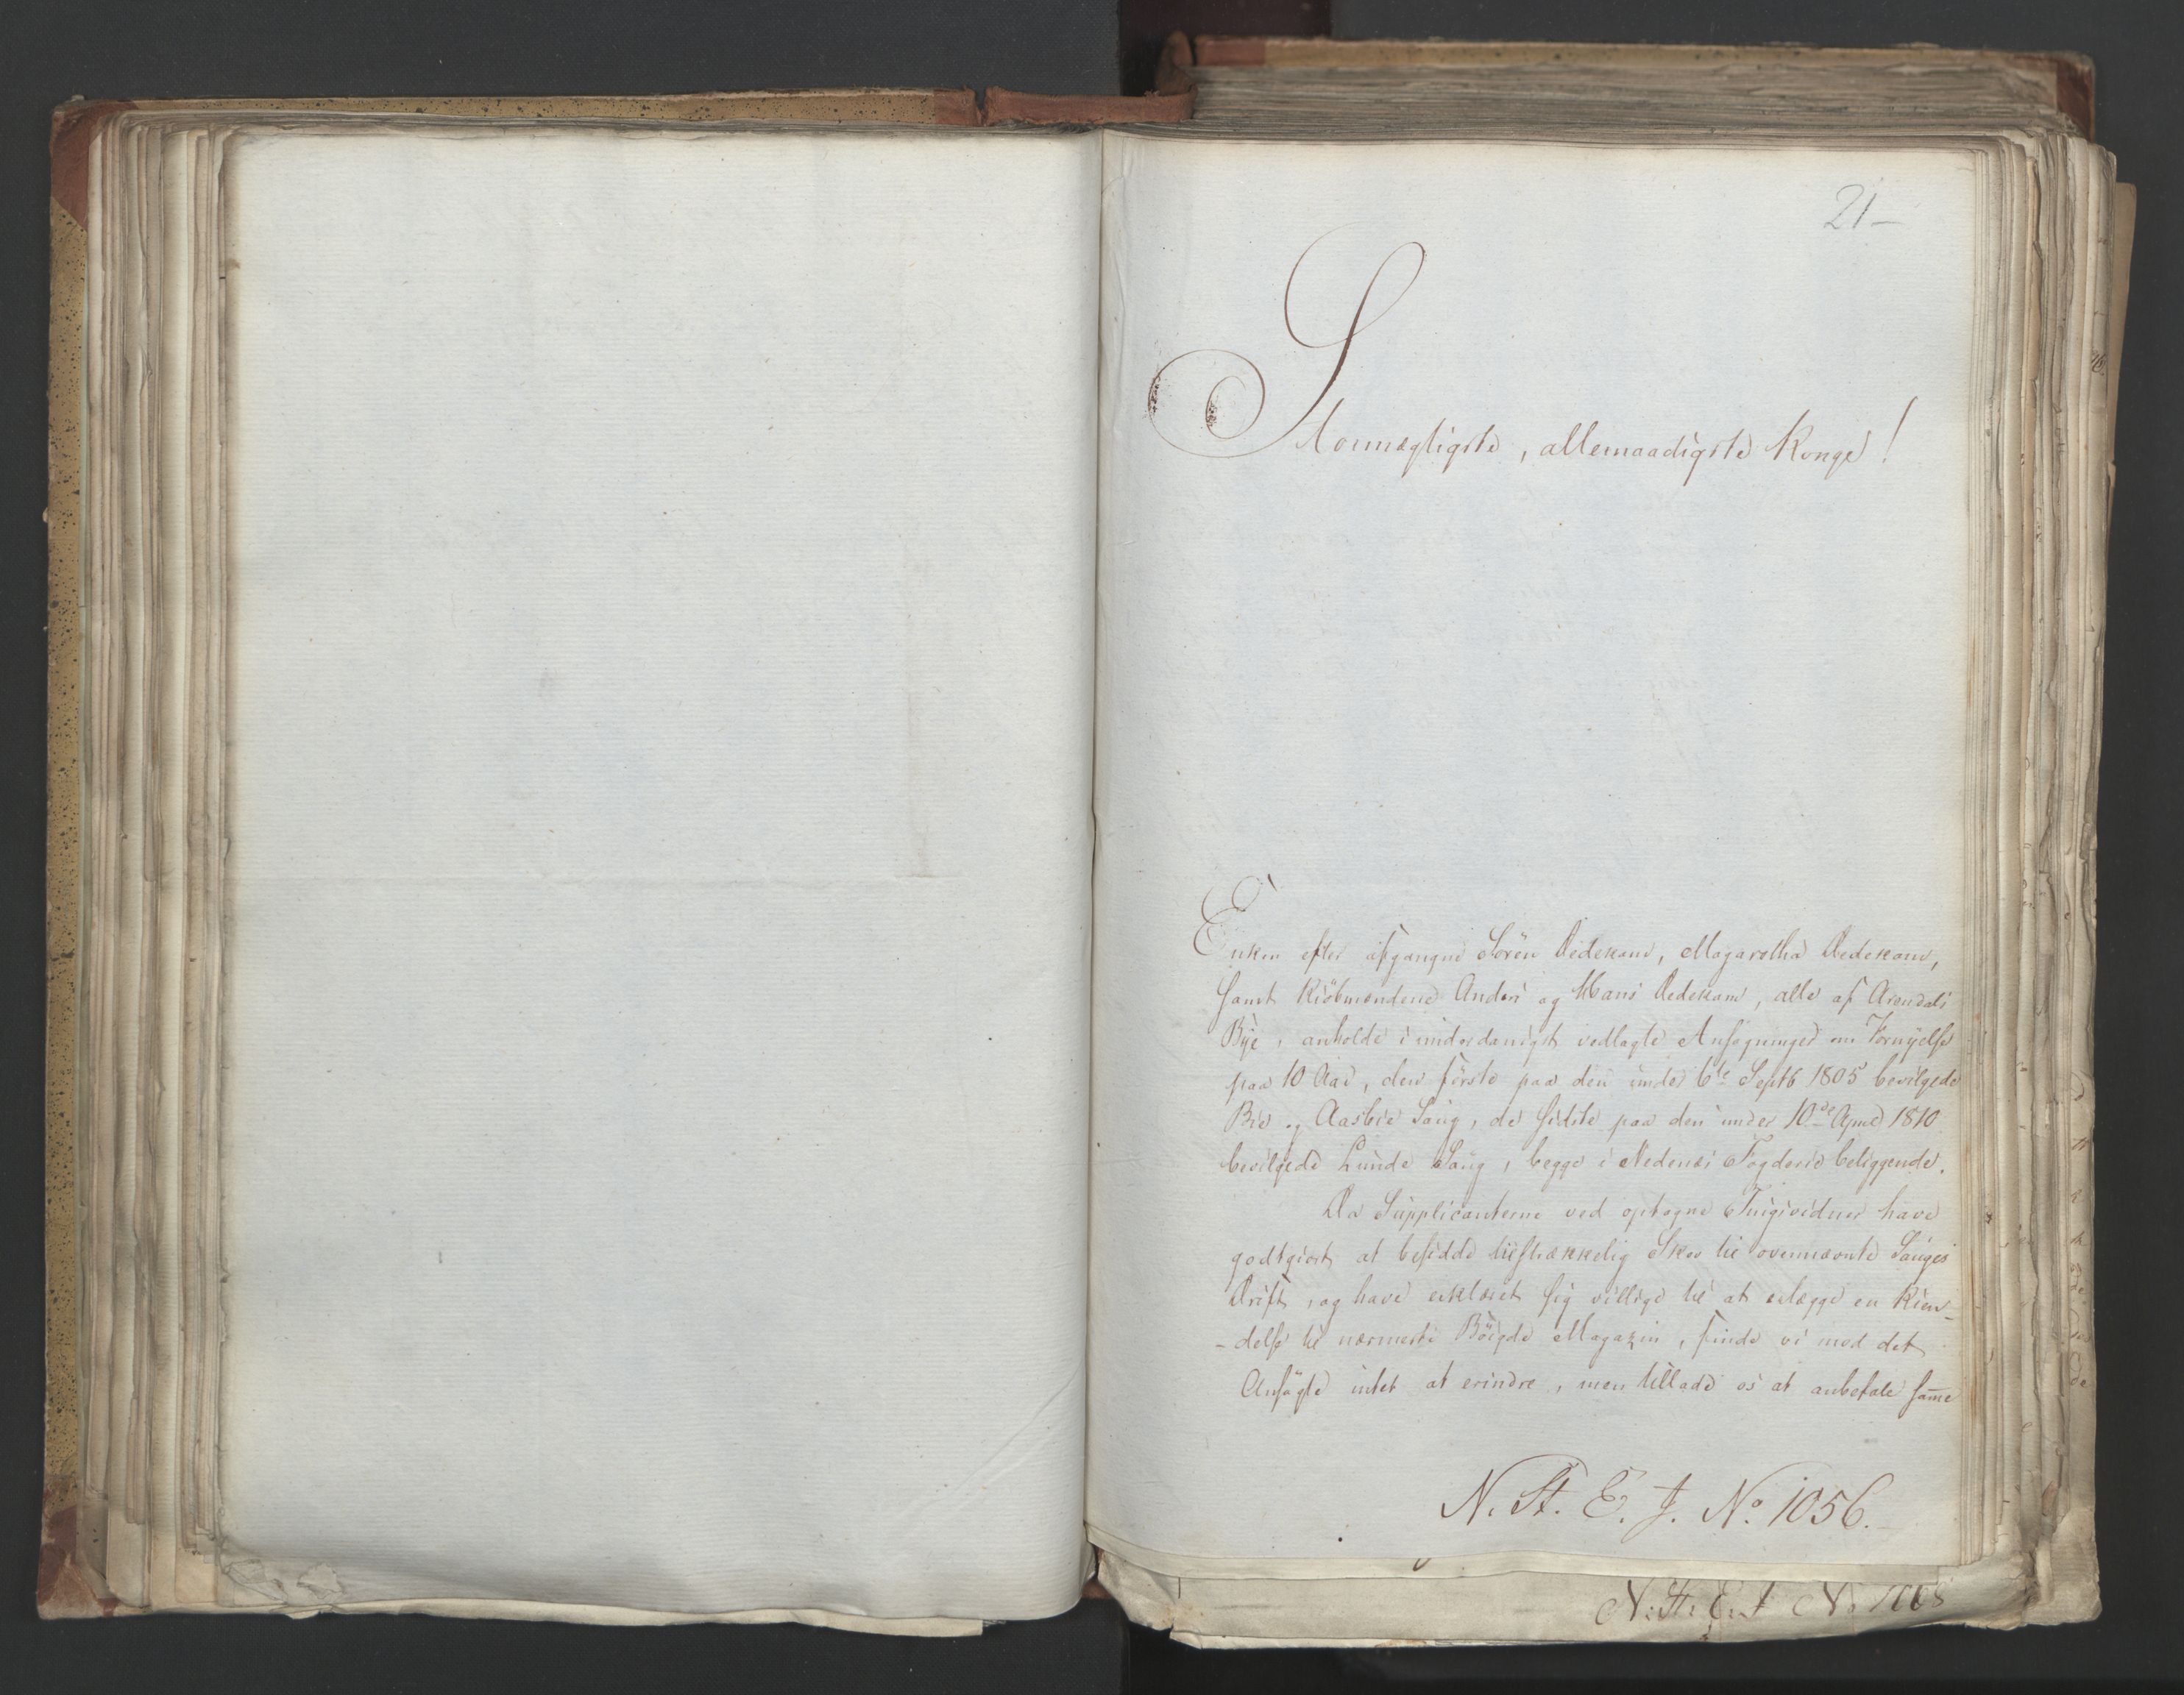 21-
Stormægtigste, allernaadigste Konge!
Enken efter afgangne Sören Dedekam, Magaretha Dedekam,
samt Kiöbmændene Anders og Hans Dedekam, alle af Arendals
Bÿe, anholde i underdanigst vedlagte Ansøgninger om Fornÿelse
paa 10 Aar, den förste paa den under 6te Septb 1805 bevilgede
Bie og Aasbie Saug, de sidste paa den under 10de April 1810
bevilgede Lunde Saug, begge i Nedenæs Fogderie beliggende.
Da Supplicanterne ved optagne Tingsvidner have
godtgiort at besidde tilstrækkelig Skov til ovennævnte Sauges
Drift, og have erklæret sig villige til at erlægge en Kien-
-delse til nærmeste Böigde Magazin, finde vi mod det
Ansögte intet at erindre, men tillade os at anbefale sam̅e
N. St. E. J. No. 1056.
N. St. E. J No 1068